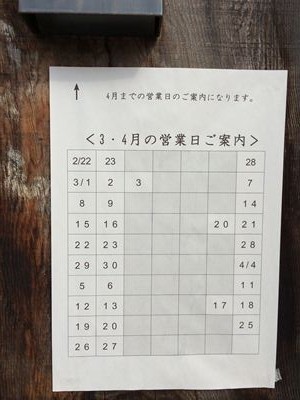 ↑ 4月までの営業日のご案内になります。
＜3・4月の営業日ご案内＞
2/22 23 28
3/1 2 3 7
8 9 14
15 16 20 21
22 23 28
29 30 4/4
5 6 11
12 13 17 18
19 20 25
26 27